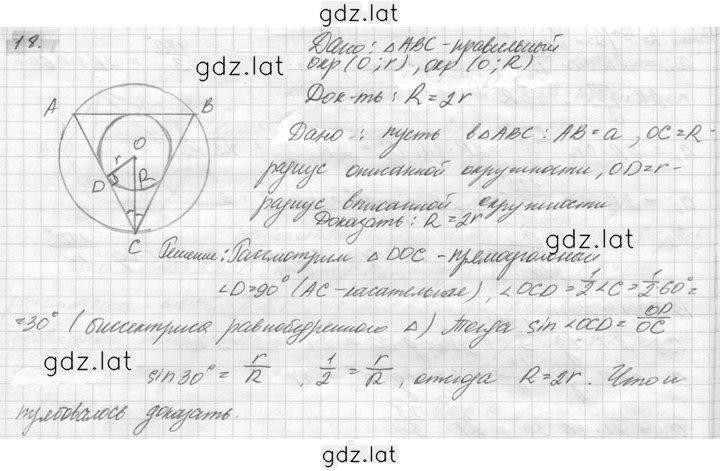 gdz.lat
18.
Дано: △ABC - правильный
окр (O; r), окр (O; R)
gdz.lat
Док-ть: R = 2r
A B O r R D C
Дано: пусть в △ABC: AB = a, OC = R -
радиус описанной окружности, OD = r -
радиус вписанной окружности
gdz.lat
Доказать: R = 2r
gdz.lat
Решение: Рассмотрим △DOC - прямоугольный
∠D = 90° (AC - касательная), ∠OCD = 1/2 ∠C = 1/2 · 60° =
= 30° (биссектриса равнобедренного △) Тогда sin∠OCD = OD/OC
gdz.lat
sin 30° = r/R, 1/2 = r/R, откуда R = 2r. Что и
gdz.lat
требовалось доказать.
gdz.lat